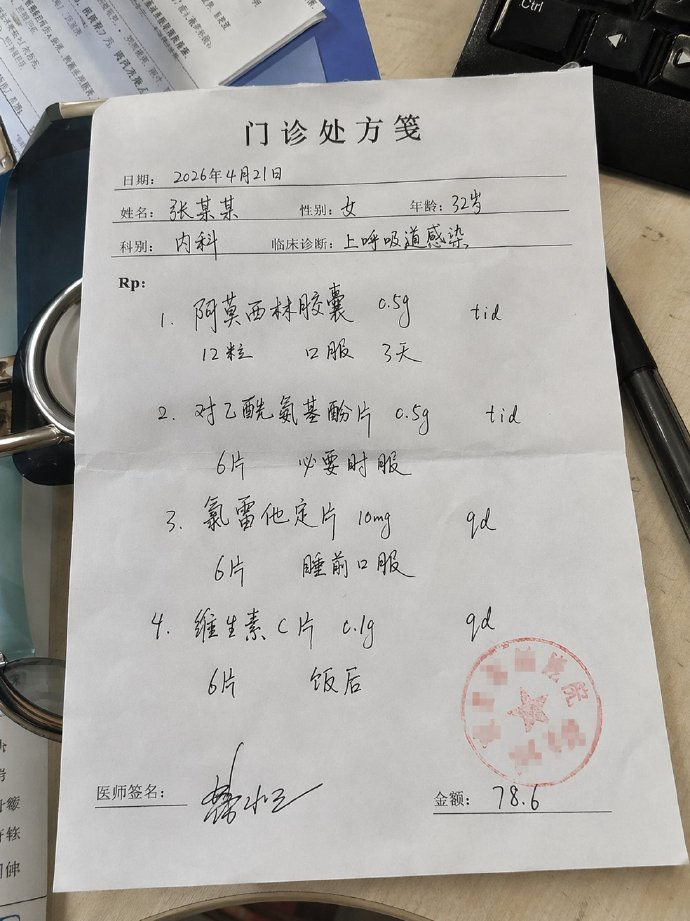 门诊处方笺
日期： 2026年4月21日
姓名： 张某某 性别： 女 年龄： 32岁
科别： 内科 临床诊断： 上呼吸道感染
Rp：
1. 阿莫西林胶囊 0.5g tid
12粒 口服 3天
2. 对乙酰氨基酚片 0.5g tid
6片 必要时服
3. 氯雷他定片 10mg qd
6片 睡前口服
4. 维生素C片 0.1g qd
6片 饭后
医师签名：
金额： 78.6
Ctrl